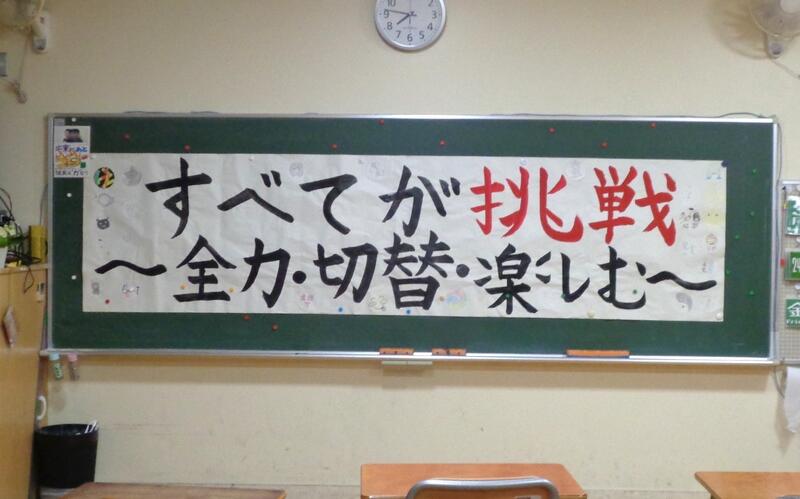 すべてが挑戦
～全力・切替・楽しむ～